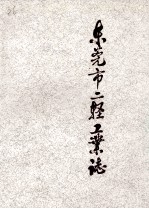 东莞市二轻工业志